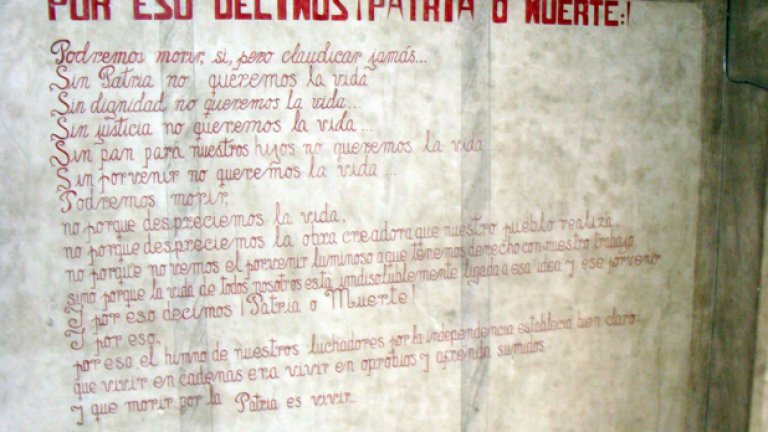 POR ESO DECIMOS ¡PATRIA O MUERTE:!
Podremos morir, si, pero claudicar jamás...
Sin Patria no queremos la vida
Sin dignidad no queremos la vida...
Sin justicia no queremos la vida...
Sin pan para nuestros hijos no queremos la vida
Sin porvenir no queremos la vida ...
Podremos morir,
no porque despreciemos la vida,
no porque despreciemos la obra creadora que nuestro pueblo realiza,
no porque no vemos el porvenir luminoso a que tenemos derecho con nuestro trabajo
sino porque la vida de todos nosotros está indisolublemente ligada a esa idea y ese porvenir
Y por eso decimos ¡Patria o Muerte!
Y por eso,
por eso, el himno de nuestros luchadores por la independencia establecia bien claro:
que vivir en cadenas era vivir en oprobios y afrenda sumidos
y que morir por la Patria es vivir...